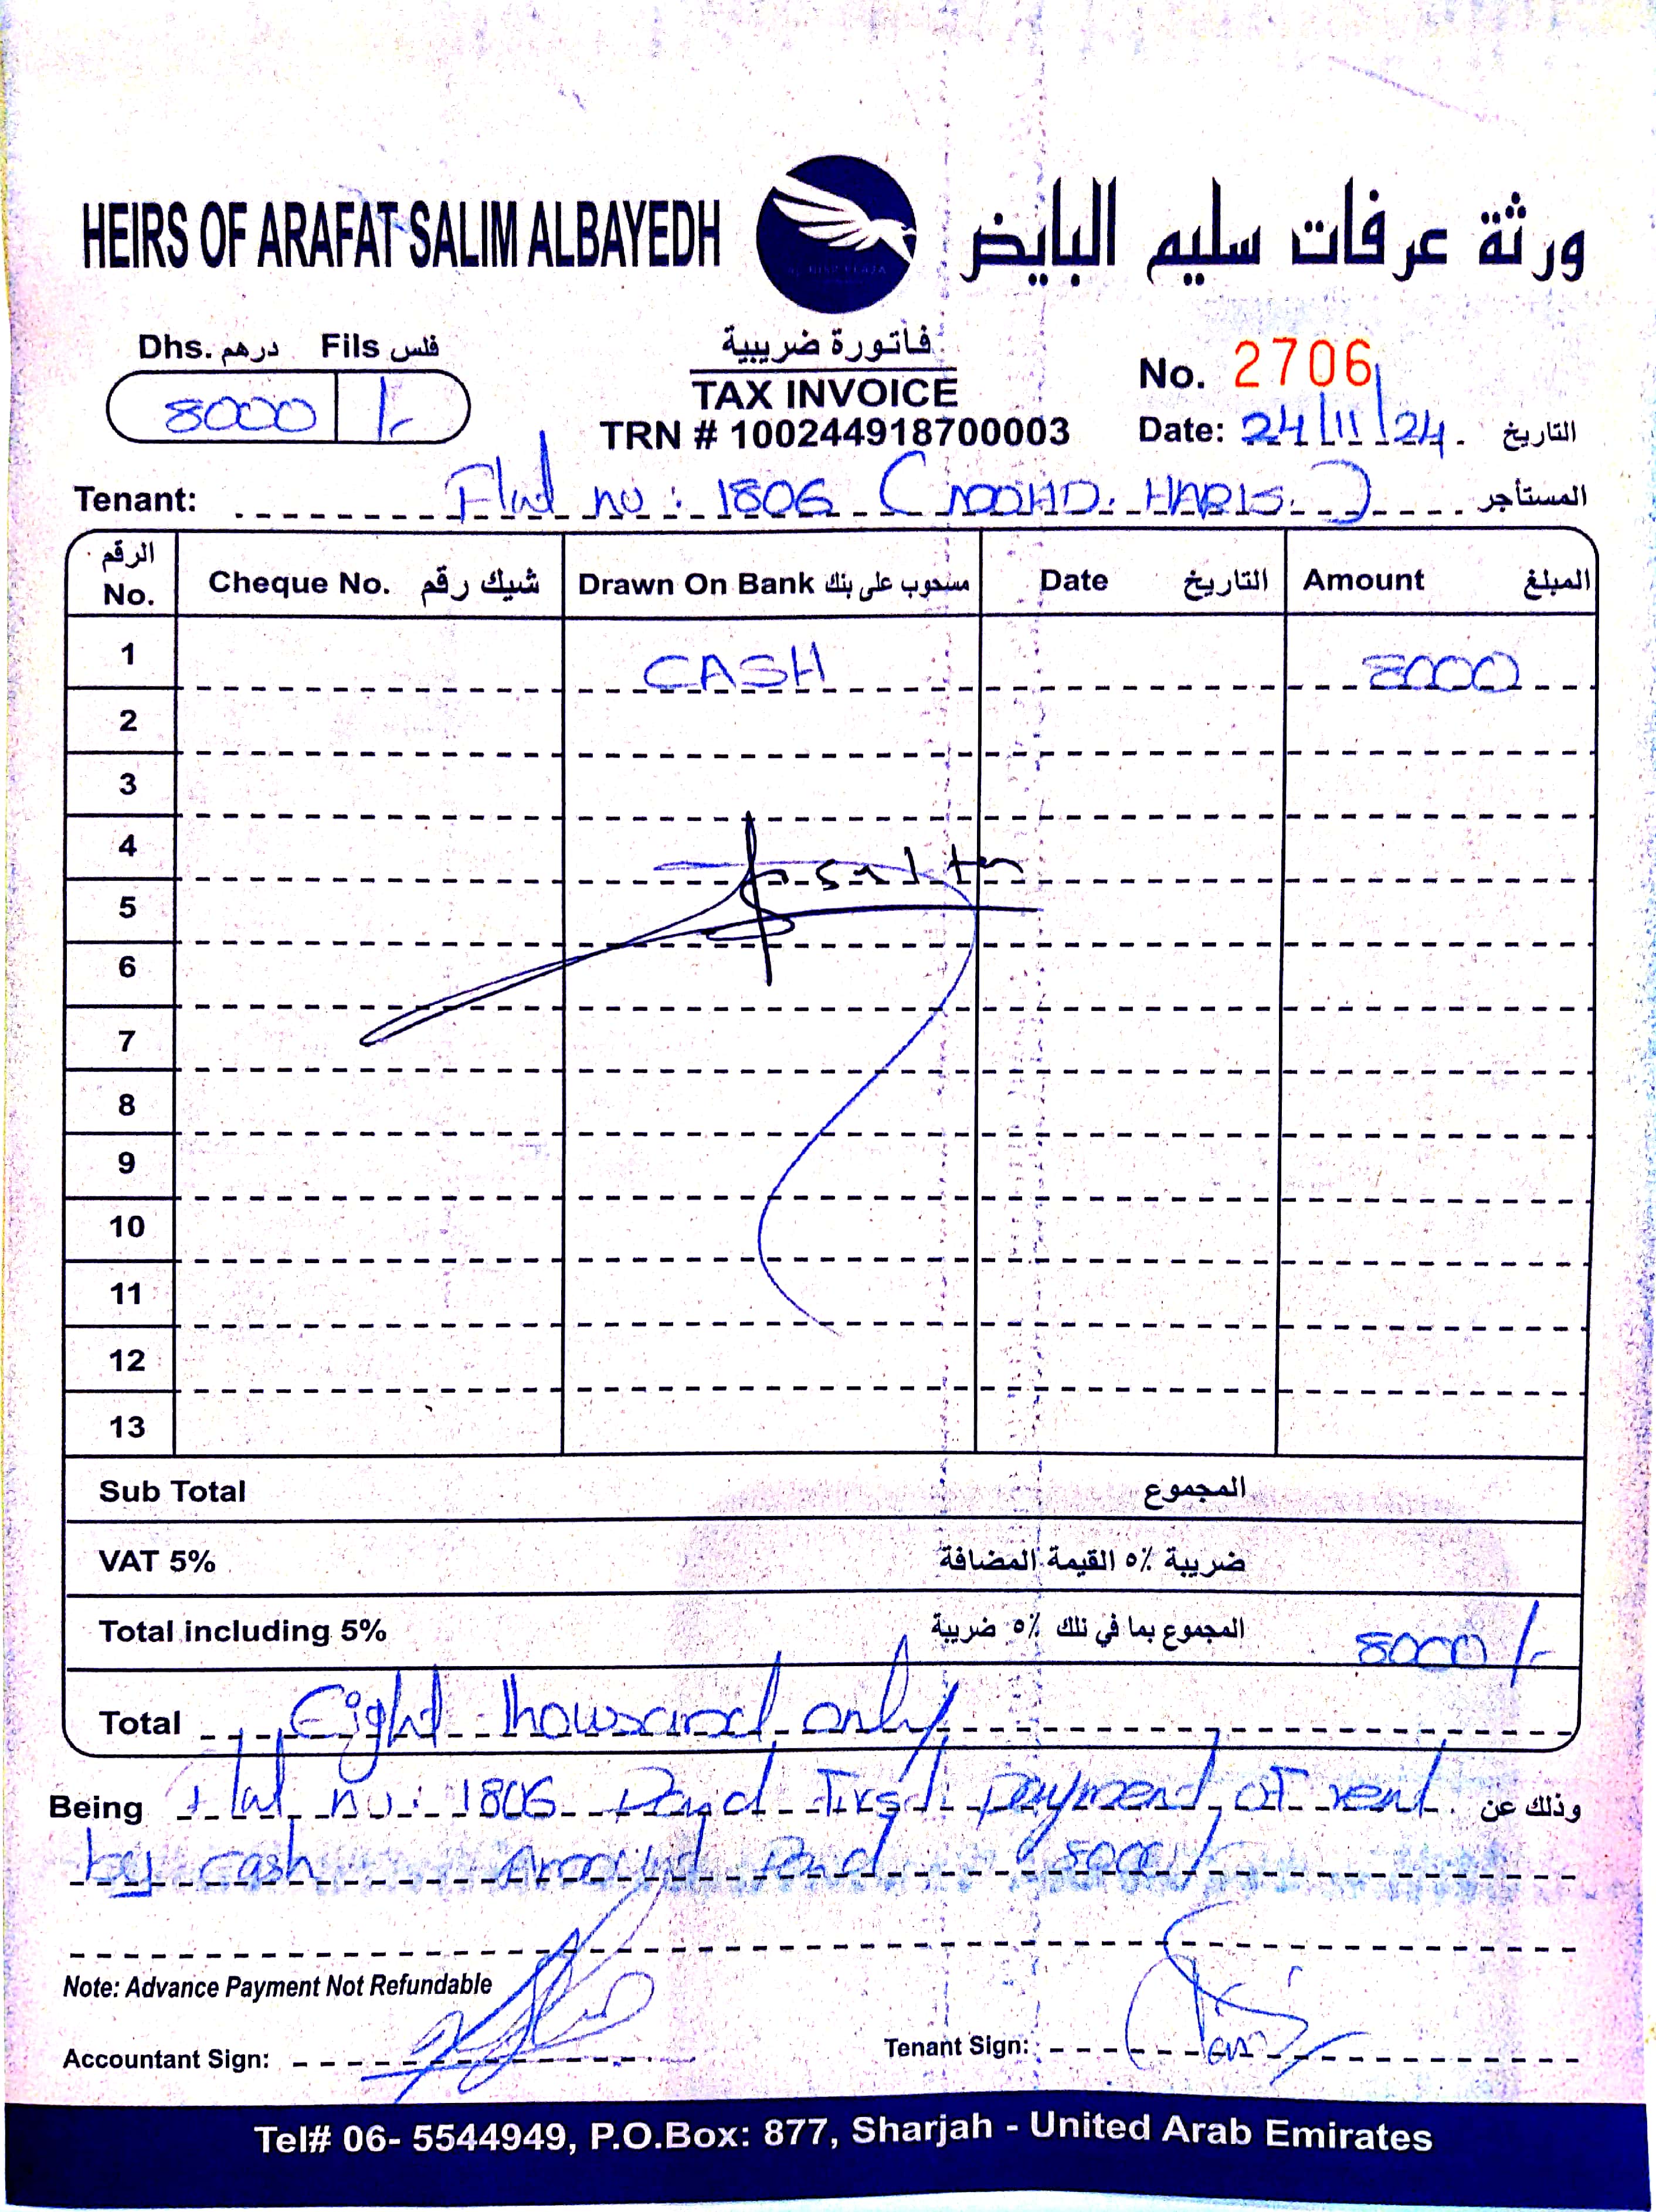 HEIRS OF ARAFAT SALIM ALBAYEDH ورثة عرفات سليم البايض
Dhs. درهم Fils فلس
8000 /-
فاتورة ضريبية
TAX INVOICE
TRN # 100244918700003
No. 2706
Date: 24/11/24. التاريخ
Tenant: Flat no: 1806 (MOHD. HARIS.) المستأجر
الرقم No. Cheque No. شيك رقم Drawn On Bank مسحوب على بنك Date التاريخ Amount المبلغ
1 CASH 8000
2
3
4
5
6
7
8
9
10
11
12
13
Sub Total المجموع
VAT 5% ضريبة ٥٪ القيمة المضافة
Total including 5% المجموع بما في ذلك ٥٪ ضريبة 8000/-
Total Eight thousand only
Being Flat no: 1806 Paid First payment of rent وذلك عن
by cash Amound Paid 8000/
Note: Advance Payment Not Refundable
Accountant Sign: Tenant Sign:
Tel# 06- 5544949, P.O.Box: 877, Sharjah - United Arab Emirates